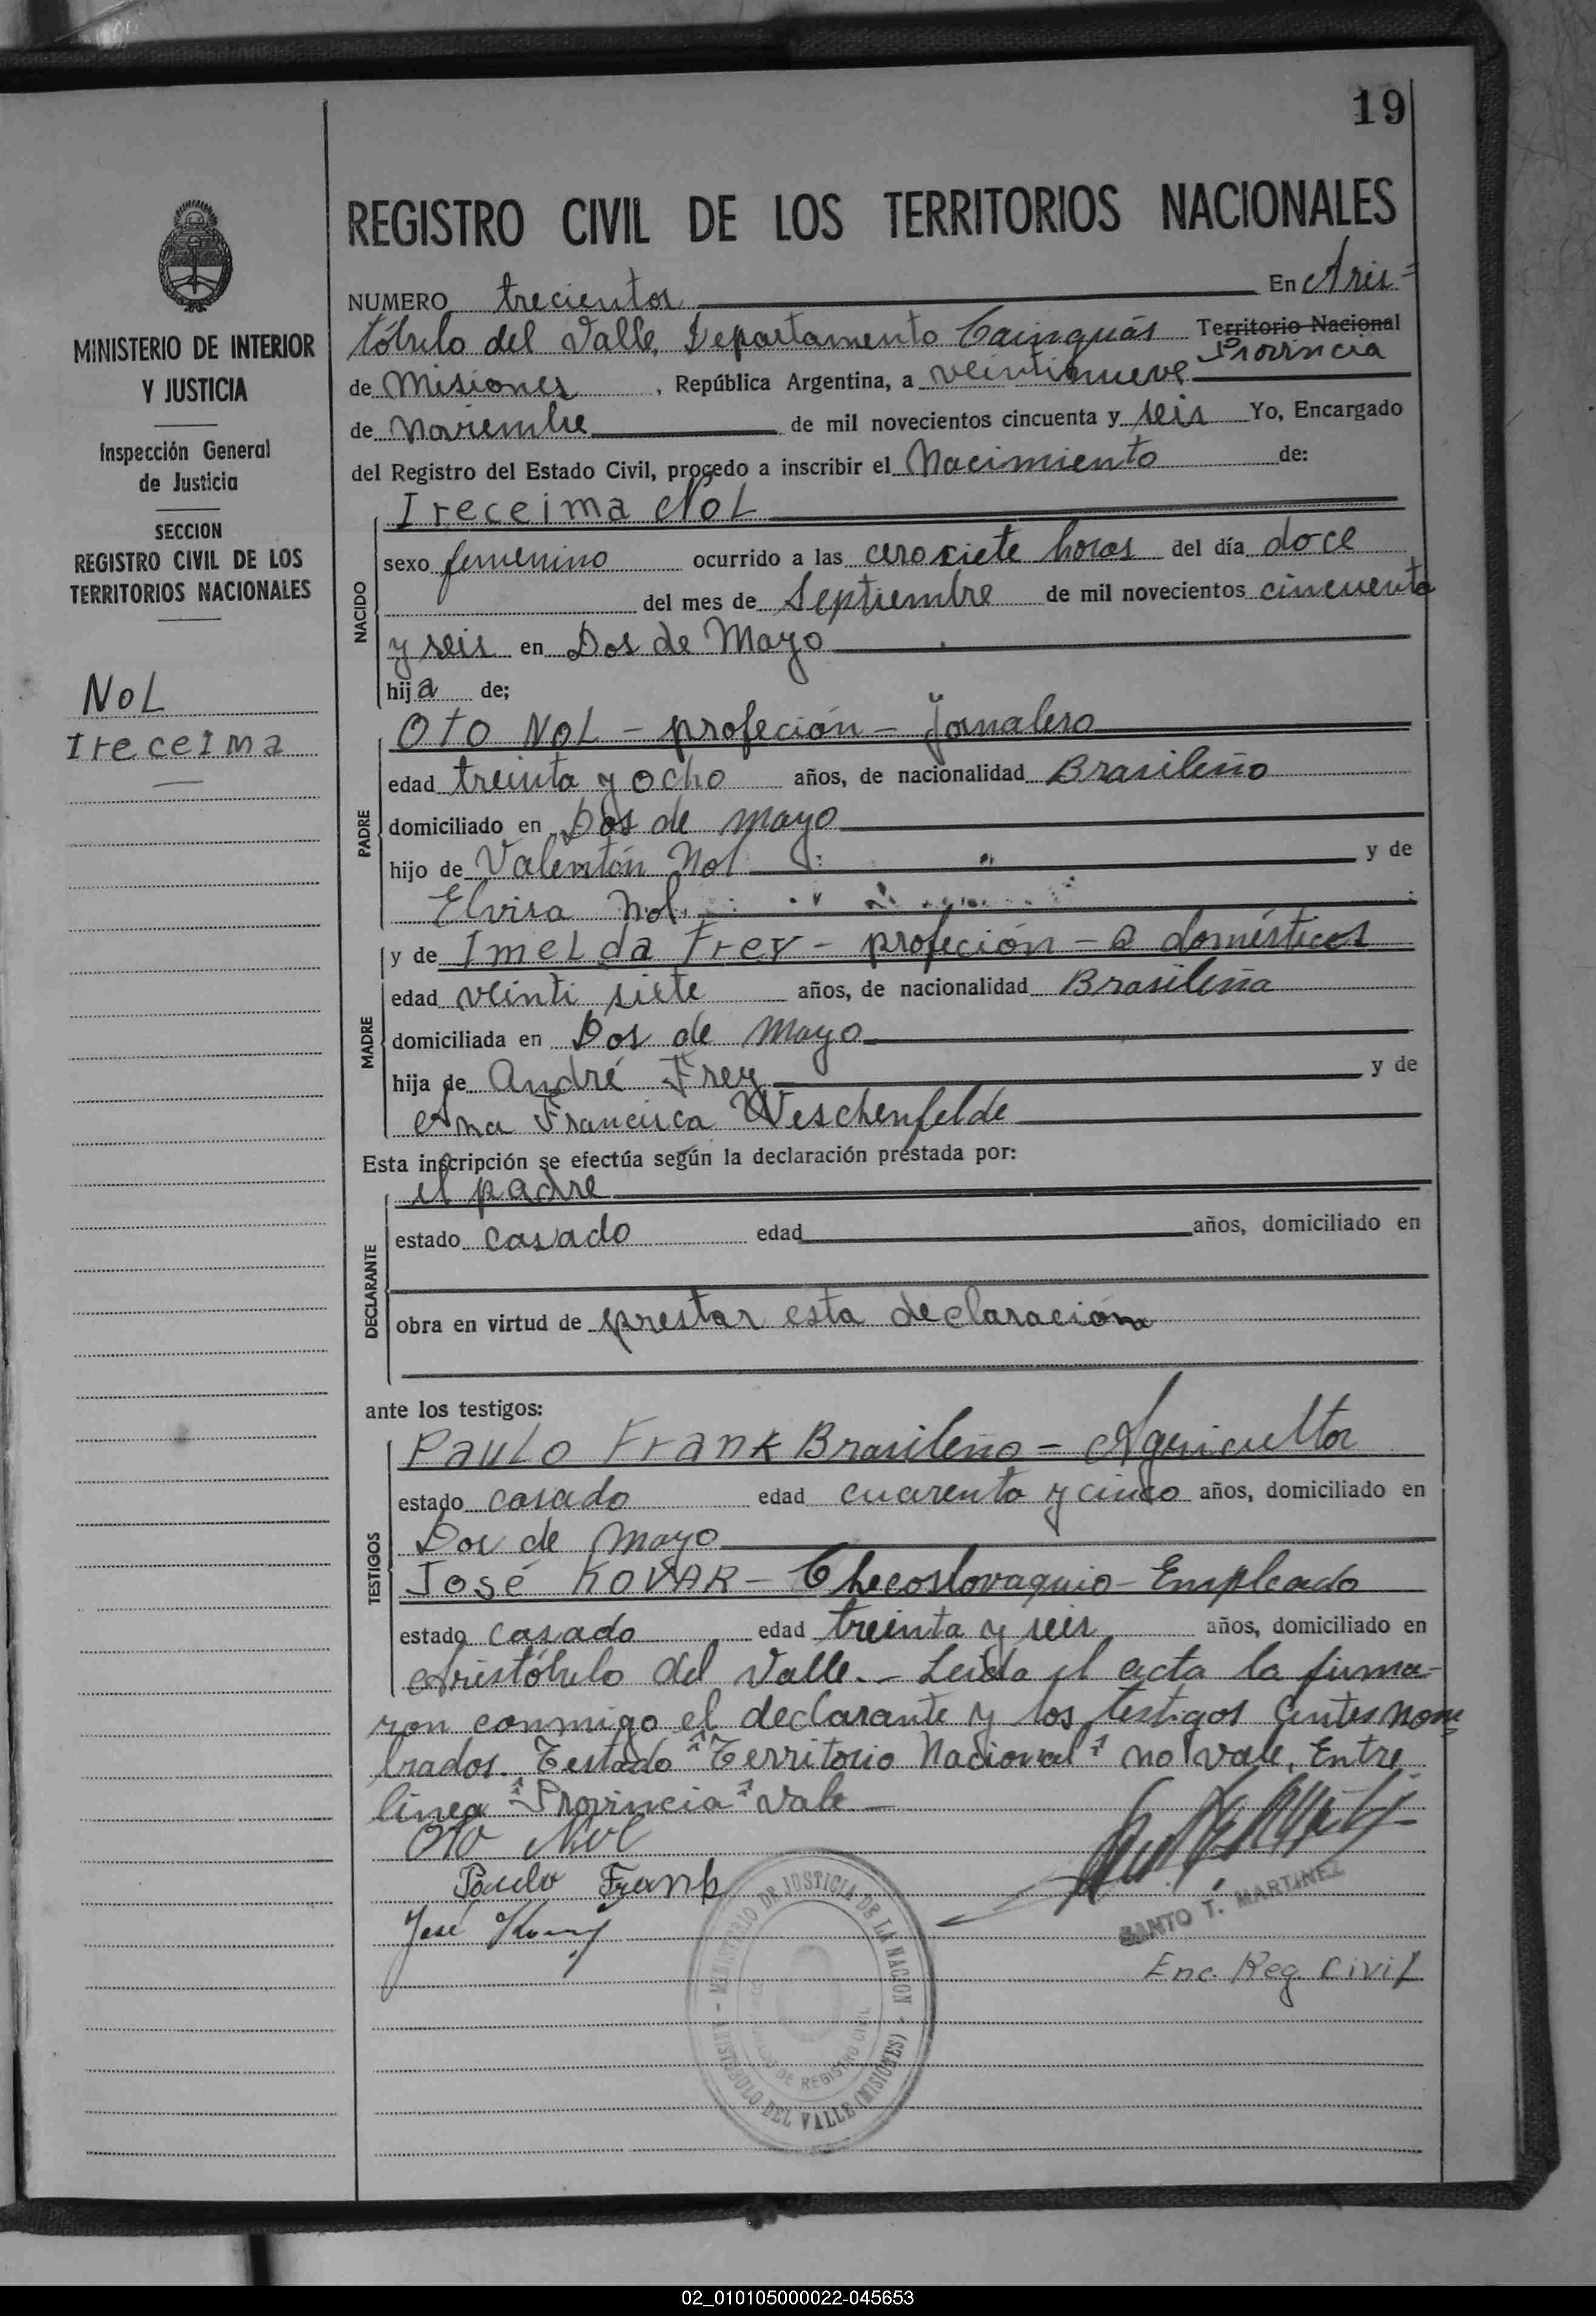 19
REGISTRO CIVIL DE LOS TERRITORIOS NACIONALES
MINISTERIO DE INTERIOR
Y JUSTICIA
Inspección General
de Justicia
SECCION
REGISTRO CIVIL DE LOS
TERRITORIOS NACIONALES
NOL
Ireceima
NUMERO trecientos En Aris=
tóbulo del Valle, Departamento Cainguás Territorio Nacional
Provincia
de Misiones, República Argentina, a veintinueve
de Noviembre de mil novecientos cincuenta y seis Yo, Encargado
del Registro del Estado Civil, procedo a inscribir el Nacimiento de:
NACIDO
Ireceima NOL
sexo femenino ocurrido a las cero siete horas del día doce
del mes de Septiembre de mil novecientos cincuenta
y seis en Dos de Mayo
hija de;
PADRE
OTO NOL - profeción - Jornalero
edad treinta y ocho años, de nacionalidad Brasileño
domiciliado en Dos de mayo
hijo de Valentón Nol y de
Elvira Nol.
MADRE
y de Imelda Frey - profeción - Q domésticos
edad veinti siete años, de nacionalidad Brasileña
domiciliada en Dos de Mayo
hija de André Frey y de
Ana Francisca Weschenfelde
Esta inscripción se efectúa según la declaración prestada por:
DECLARANTE
el padre
estado casado edad años, domiciliado en
obra en virtud de prestar esta declaración
ante los testigos:
TESTIGOS
Paulo Frank Brasileño - Agricultor
estado casado edad cuarenta y cinco años, domiciliado en
Dos de Mayo
José KOVAR - Checoslovaquio - Empleado
estado casado edad treinta y seis años, domiciliado en
Aristóbulo del Valle. - Leida el acta la firma-
ron conmigo el declarante y los testigos antes nom
brados. Testado "Territorio Nacional" no vale. Entre
línea "Provincia" vale -
Oto Nol
Paulo Frank
José
SANTO T. MARTINEZ
Enc. Reg. Civil
MINISTERIO DE JUSTICIA DE LA NACION
DE REGISTRO CIVIL
ARISTOBULO DEL VALLE (MISIONES)
02_010105000022-045653